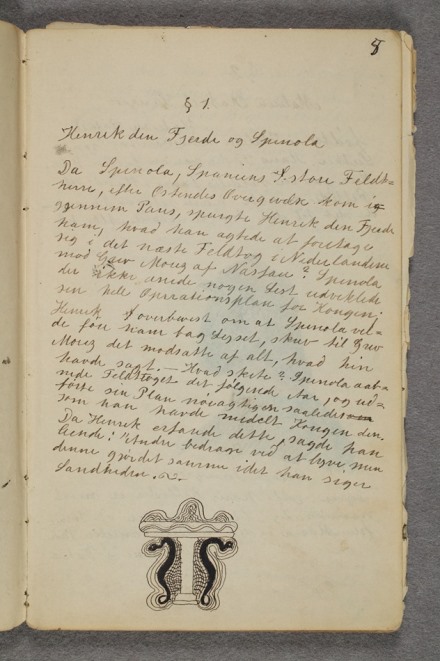 8
§ 1.
Henrik den Fjerde og Spinola
Da Spinola, Spaniens største Feldt=
herre, efter Ostendes Overgivelse kom ig
gjennem Paris, spurgte Henrik den Fjerde
ham, hvad han agtede at foretage
sig i det næste Feldttog i Nederlandene
mod Grev Moriz af Nassau? Spinola
der ikke anede nogen List udviklede
sin hele Operationsplan for Kongen.
Henrik, overbevist om at Spinola vil=
de føre ham bag Lyset, skrev til Grev
Moriz det modsatte af alt, hvad hin
havde sagt. — Hvad skete? Spinola aab=
nede Feldttoget det følgende Aar, og ud=
førte sin Plan nøiagtigen saaledes
som han havde meddelt Kongen den.
Da Henrik erfarede dette, sagde han
leende: "Andre bedrage ved at lyve, men
denne gjør det samme idet han siger
Sandheden.